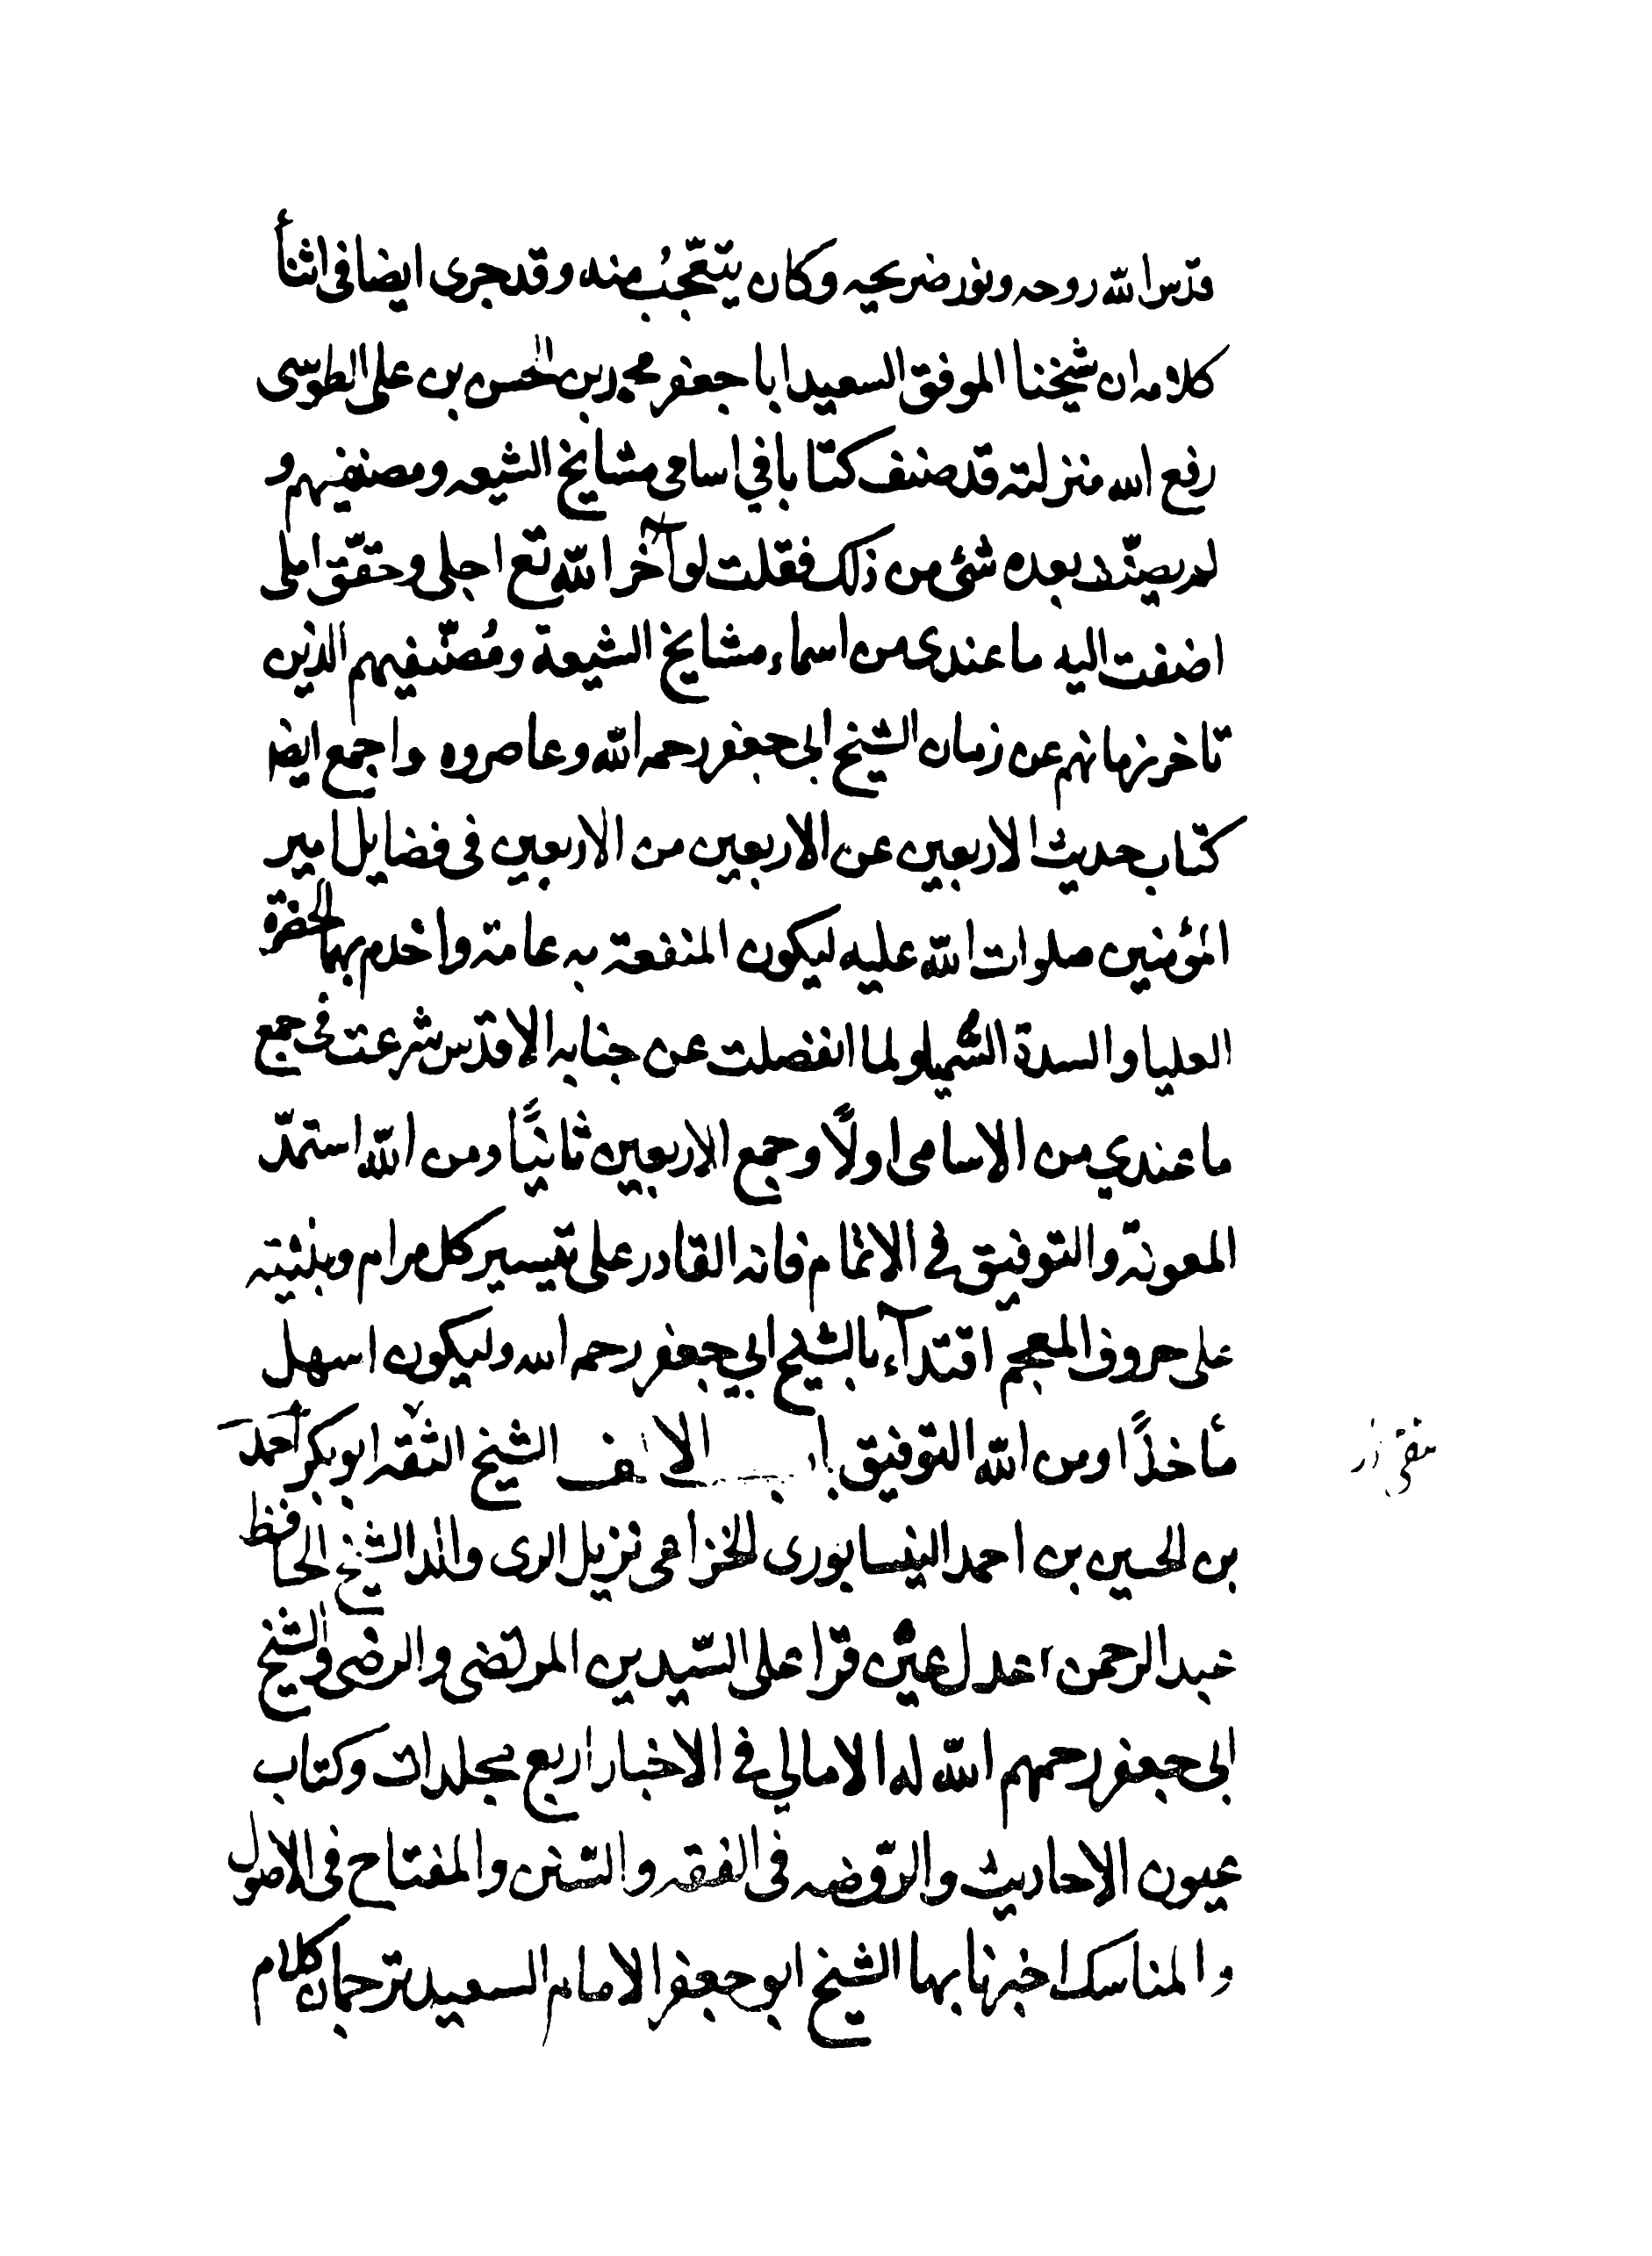 قدّس الله روحه ونور ضريحه وكان يتعجّبُ منه وقد جرى ايضا فى اثنأ
كلامه ان شيخنا الموفق السعيد ابا جعفر محمد بن الحسن بن على الطوسى
رفع الله منزلته قد صنف كتابا في اسامى مشايخ الشيعه ومصنفيهم و
لم يصنّف بعده شئ من ذلك فقلت لو آخر الله تع اجلى وحقّق املى
اضفت اليه ما عندى من اسماء مشايخ الشيعة ومُصنّفيهم الذين
تاخر زمانهم عن زمان الشيخ ابى جعفر رحمه الله وعاصروه واجمع ايضا
كتاب حديث الاربعين عن الاربعين من الاربعين فى فضايل امير
المؤمنين صلوات الله عليه ليكون المنفعة به عامة واخدم بهما الحضرة
العليا والسدة الشمياء ولما انفصلت عن جنابه الاقدس شرعت فى جمع
ما عندي من الاسامى اولًا وجمع الاربعين ثانيًا ومن الله استمدّ
المعونة والتوفيق فى الاتمام فانه القادر على تيسير كل مرام وبنيته
على حروف المعجم اقتدآء بالشيخ ابي جعفر رحمه الله وليكون اسهل
مأخذًا ومن الله التوفيق باب الالف الشيخ الثقه ابو بكر احمد
بن الحسين بن احمد النيسابورى الخزاعى نزيل الرى والد الشيخ الحافظ
عبد الرحمن عدل عين قرا على السّيدين المرتضى والرضى والشيخ
ابى جعفر رحمهم الله له الامالي فى الاخبار اربع مجلدات وكتاب
عيون الاحاديث والرّوضه فى الفقه والسّنن والمفتاح فى الاصول
والمناسك اخبرنا بها الشيخ ابو جعفر الامام السعيد ترجمان كلام